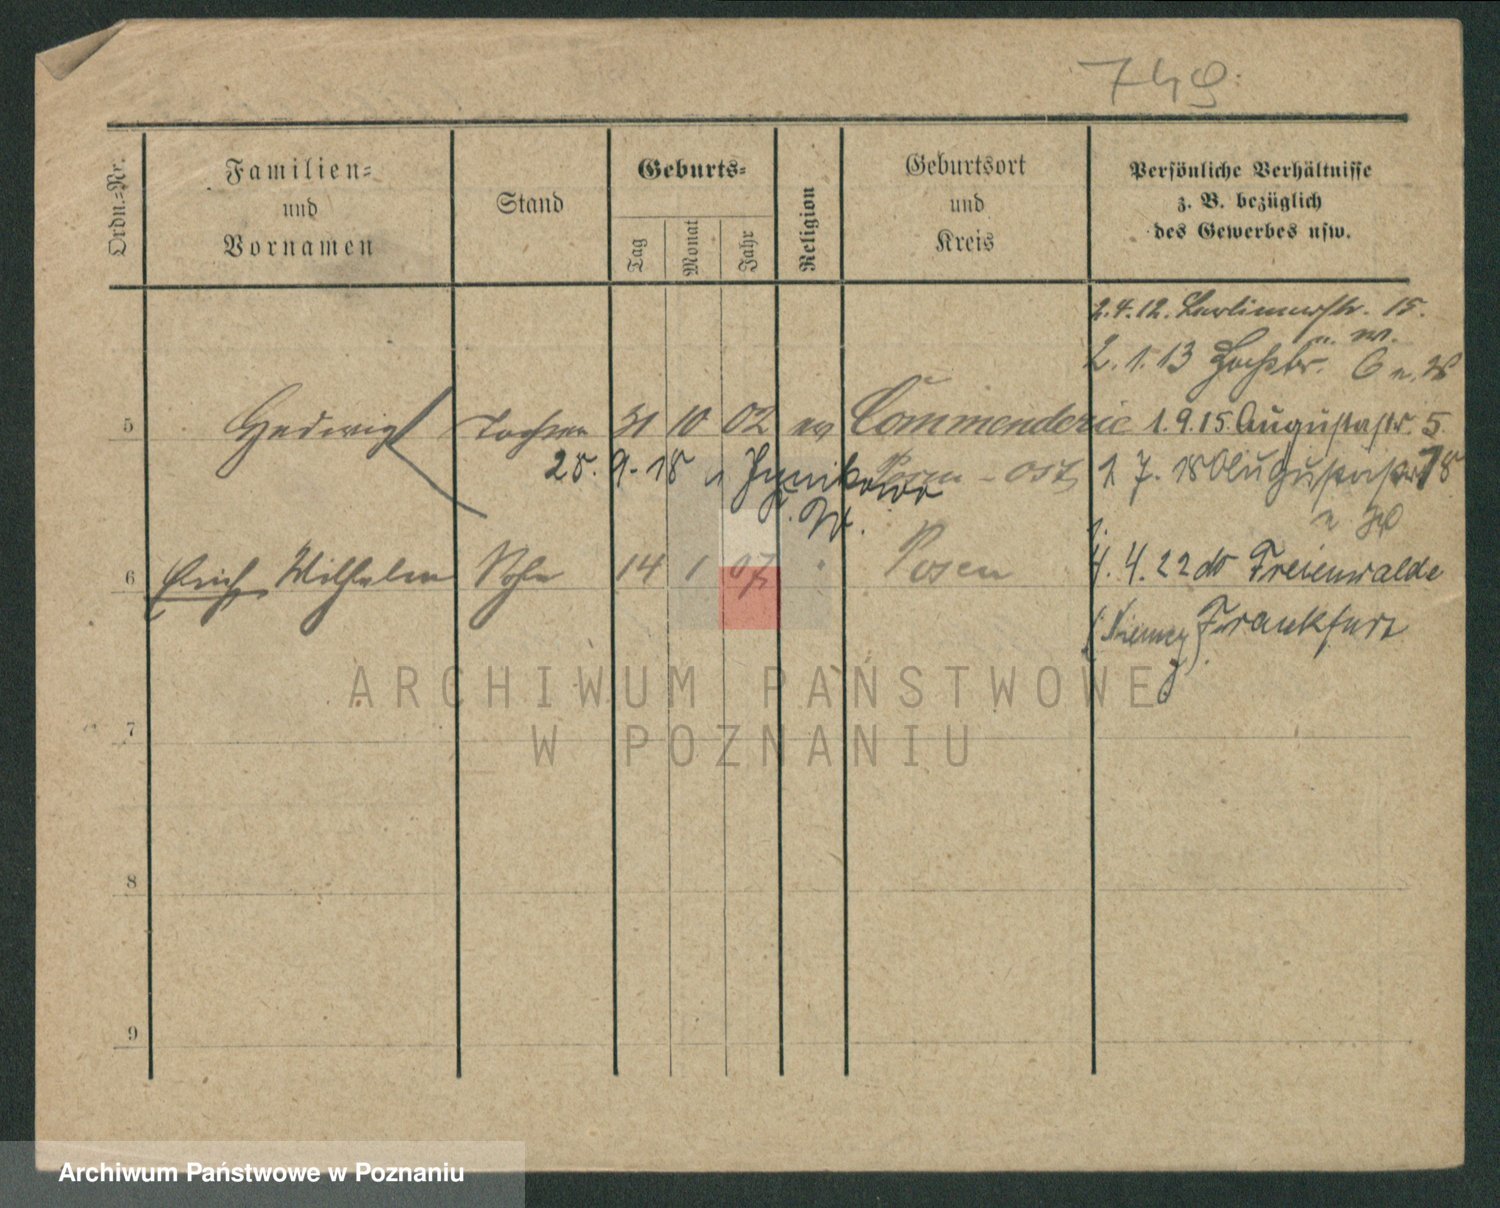 749.
Ordn.=Nr.
Familien=
und
Vornamen
Stand
Geburts=
Tag
Monat
Jahr
Religion
Geburtsort
und
Kreis
Persönliche Verhältnisse
z. B. bezüglich
des Gewerbes usw.
2.4.12. Berlinerstr. 15.
u. W.
2.1.13 6 u. W
5 Hedwig Tochter 31 10 02 ev Commenderie 1.9.15 Augustastr. 5.
25.9.18 n Junikowo Posen-Ost 1 7. 18 Augustastr 18
K. W.
6 Erich Wilhelm Sohn 14 1 07 " Posen 4.4.22 do Freienwalde
(Niemcy) Frankfurt
7
8
9
ARCHIWUM PAŃSTWOWE
W POZNANIU
Archiwum Państwowe w Poznaniu